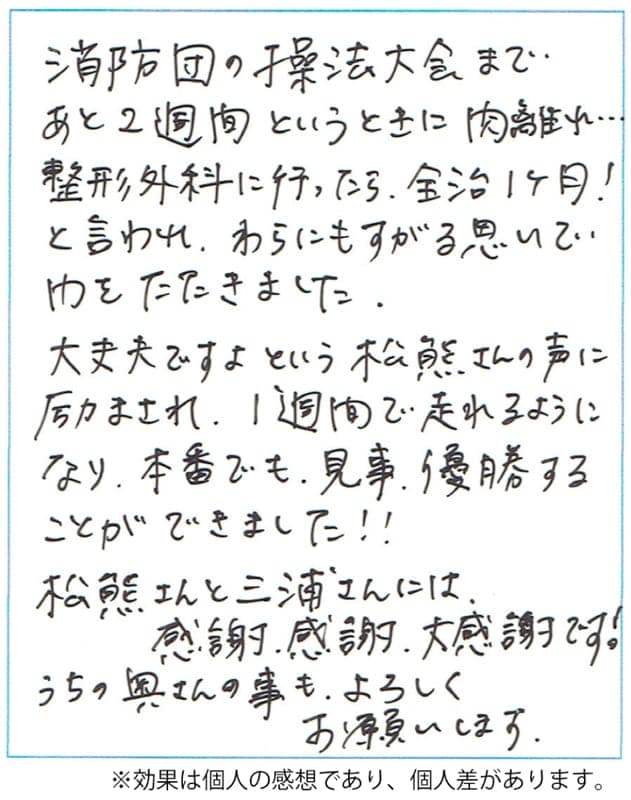 消防団の操法大会まで‥
あと2週間というときに肉離れ…
整形外科に行ったら、全治1ヶ月!
と言われ、わらにもすがる思いで‥
門をたたきました。
大丈夫ですよという松熊さんの声に
励まされ、1週間で走れるように
なり、本番でも、見事、優勝する
ことができました!!
松熊さんと三浦さんには、
感謝、感謝、大感謝です!
うちの奥さんの事も、よろしく
お願いします。
※効果は個人の感想であり、個人差があります。